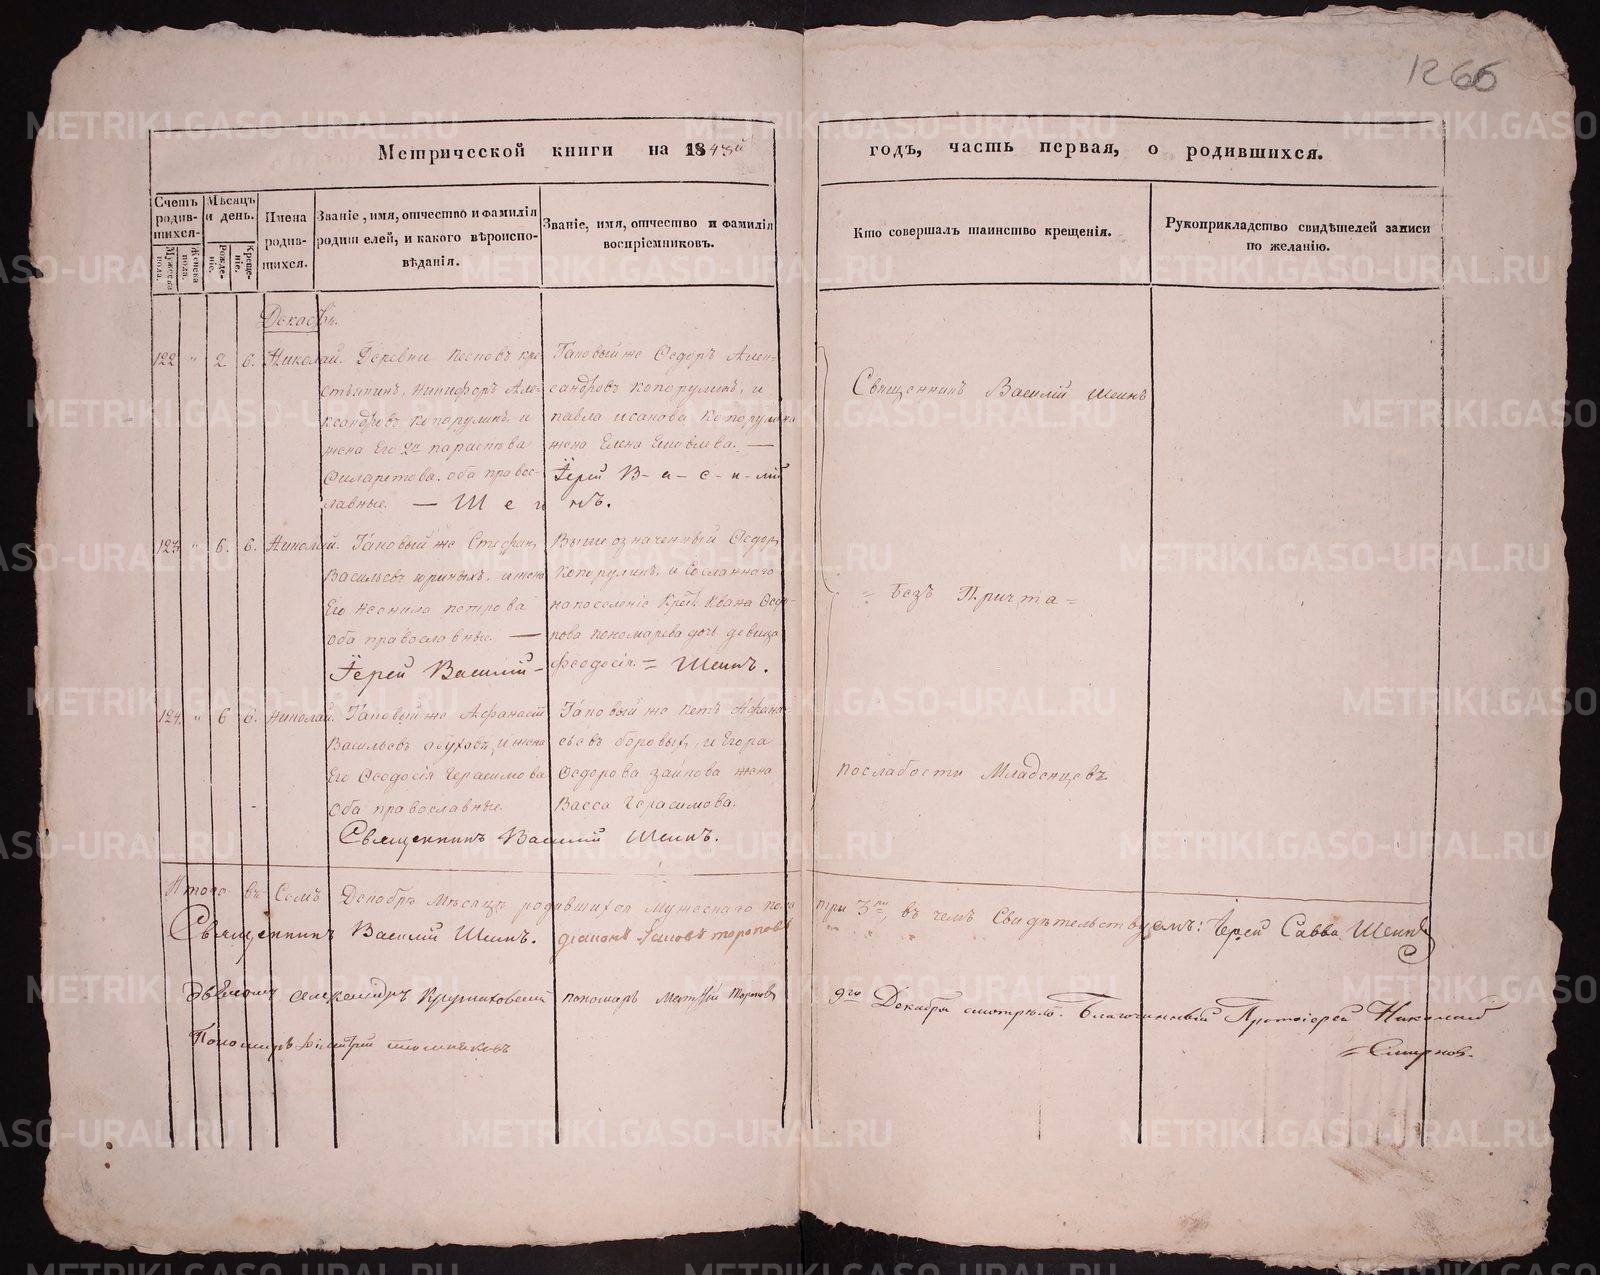 1266
Метрической книги на 1843й
годъ, часть первая, о родившихся.
Счетъ родив-шихся.
Мужеска пола.
Женска пола.
Мѣсяцъ и день.
Рожде-ніе.
Креще-ніе.
Имена родив-шихся.
Званіе, имя, отчество и фамилія
родителей, и какого вѣроиспо-
вѣданія.
Званіе, имя, отчество и фамилія
воспріемниковъ.
Кто совершалъ таинство крещенія.
Рукоприкладство свидѣтелей записи
по желанію.
122 " 2 6. Николай. Деревни кре-
стьянинъ Никифоръ Але-
ксандровъ Копорулинъ и
жена Его 2я Параскева
Филаретова. оба право-
славные. — Ш е и нъ.
Таковый же Ѳедоръ Алек-
сандровъ Копорулинъ, и
Павла Исакова Копорулина
жена Елена Яковлева. —
Іерей В-а-с-и-лій
Священникъ Василій Шеинъ
123 " 6. 6. Николай. Таковый же Стефанъ
Васильевъ и жена
Его Неонила Петрова
оба православные. —
Іерей Василій –
Вышеозначенный Ѳедоръ
Копорулинъ, и Сосланнаго
на поселеніе Крест. Ивана Ѳедо-
рова Пономарева дочь девица
Феодосія. = Шеинъ.
= Безъ Причта =
124. " 6 6. Николай. Таковый же Афанасій
Васильевъ и жена
Его Ѳеодосія Герасимова
оба православные.
Священникъ Василій Шеинъ.
Таковый же Афана-
сьевъ Боровыхъ, и Егора
Ѳедорова жена
Васса Герасимова.
по слабости Младенцевъ
Итого въ Семъ Декабрѣ Мѣсяцѣ родившихся мужескаго пола
три 3ри, въ чемъ Свидѣтельствуемъ: Іерей Савва Шеинъ
Священникъ Василій Шеинъ. діаконъ Топоровъ
Александръ пономарь Топоровъ
9го Декабря смотрѣлъ. Благочинный Протоіерей Николай
= Смирновъ.
Пономарь Димитрій
METRIKI.GASO-URAL.RU